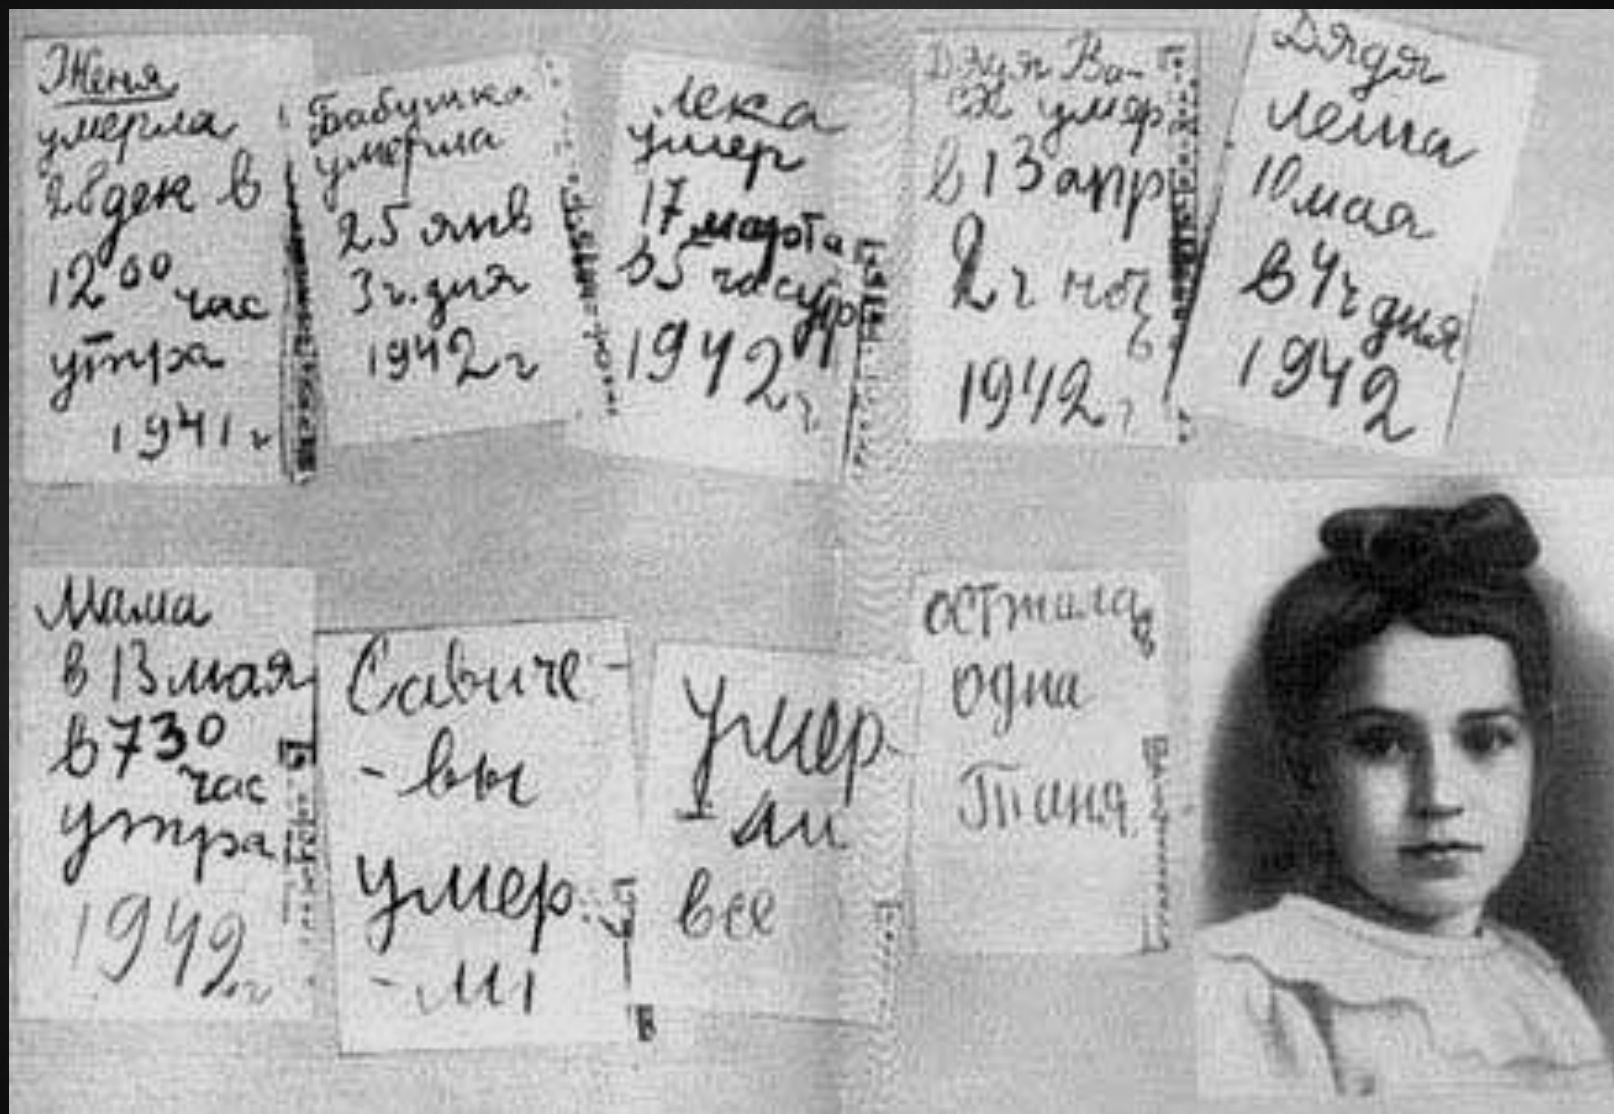 Женя
умерла
28 дек в
12 00 час
утра
1941 г
Бабушка
умерла
25 янв
3 ч. дня
1942 г
Лека
умер
17 марта
в 5 час утр
1942 г.
Дядя Ва-
ся умер
в 13 апр
2 ч ноч
ь
1942 г
Дядя
Леша
10 мая
в 4 ч дня
1942
Мама
в 13 мая
в 7 30
час
утра
1942 г
Савиче-
-вы
умер
-ли
Умер
ли
все
осталась
одна
Таня